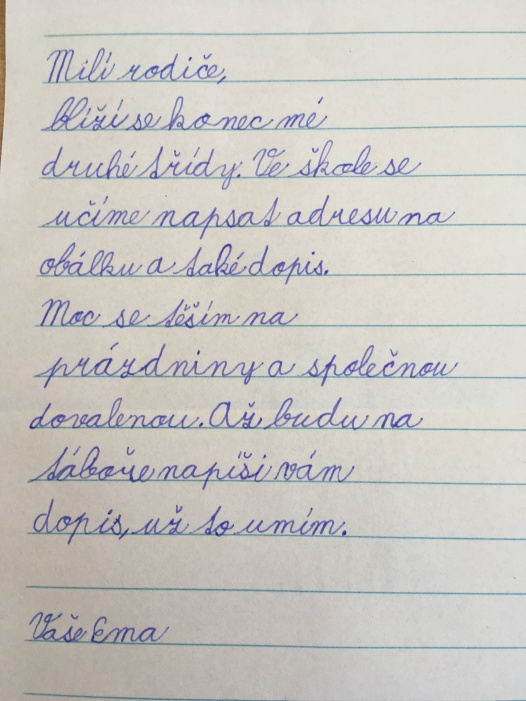 Milí rodiče,
blíží se konec mé
druhé třídy. Ve škole se
učíme napsat adresu na
obálku a také dopis.
Moc se těším na
prázdniny a společnou
dovalenou. Až budu na
táboře napíši vám
dopis, už to umím.
Vaše Ema